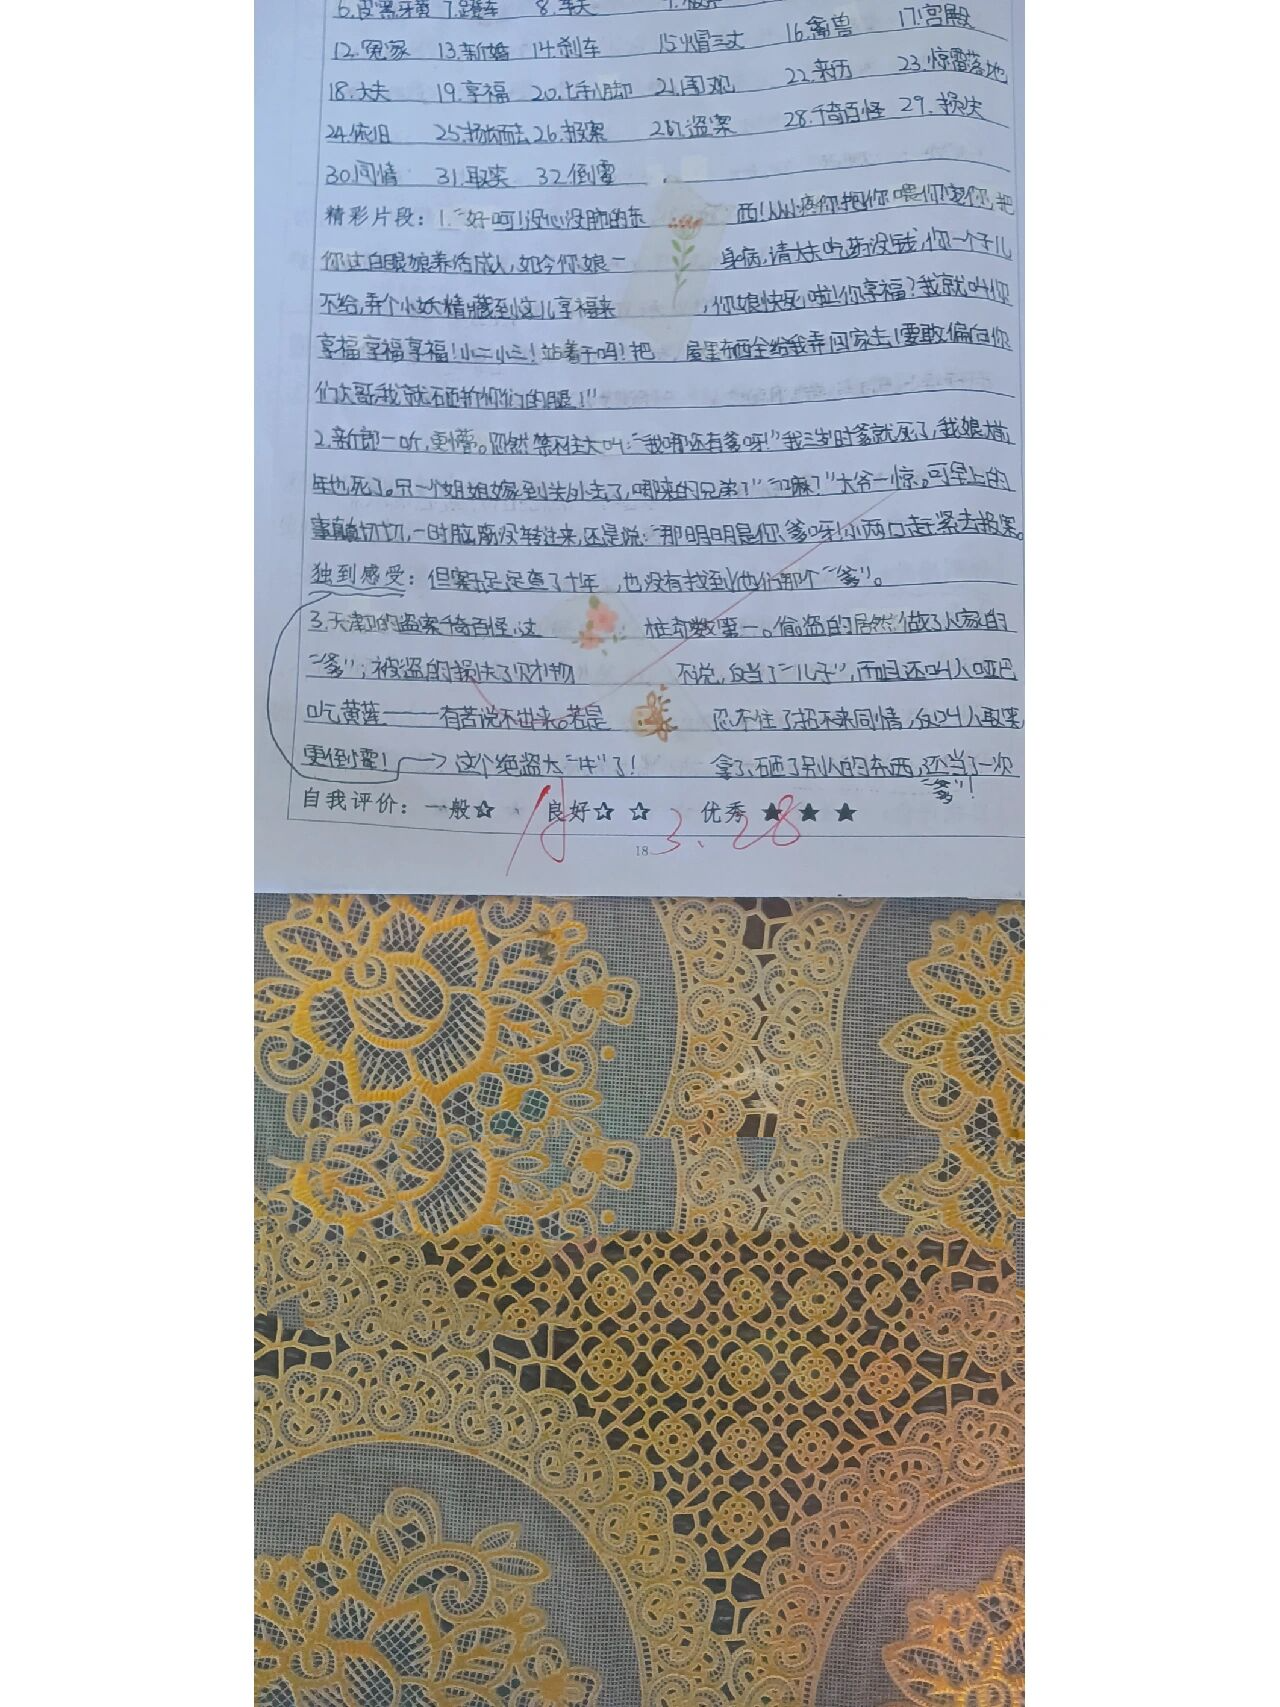 6.皮黑牙黄 7.蹬车 8.车夫
12.冤家 13.新婚 14.刹车 15.火冒三丈 16.禽兽 17.宫殿
18.大夫 19.享福 20.七手八脚 21.围观 22.来历 23.惊雷落地
24.依旧 25.扬长而去 26.报案 27.盗案 28.千奇百怪 29.损失
30.同情 31.取笑 32.倒霉
精彩片段：1.“好呵!没心没肺的东西!从小疼你抱你喂你宠你,把
你这白眼狼养活成人,如今你娘一身病,请大夫吃药没钱,你一个子儿
不给,弄个小妖精藏到这儿享福来,你娘快死啦!你享福?我就叫你
享福享福享福!小二小三!站着干吗!把屋里东西全给我弄回家去!要敢偏向你
们大哥,我就砸折你们的腿!”
2.新郎一听,更懵。忽然禁不住大叫:“我哪还有爹呀!”我三岁时爹就死了,我娘大前
年也死了。只一个姐姐嫁到关外去了,哪来的兄弟?”“嘛?”大爷一惊。可早上的
事真真切切,一时脑筋没转过来,还是说:“那明明是你爹呀!小两口赶紧去报案。
独到感受：但案子足足查了十年,也没有找到他们那个“爹”。
3.天津卫的盗案千奇百怪,这桩奇数第一。偷盗的居然做了人家的
“爹”;被盗的损失了财物不说,反当了“儿子”,而且还叫人哑巴
吃黄莲——有苦说不出来。若是忍不住了招不来同情,反叫人取笑
更倒霉!→这个绝盗太“牛”了!拿了、砸了别人的东西,还当了一次
“爹”!
自我评价：一般☆ 良好☆ ☆ 优秀★ ★ ★
3.28
18